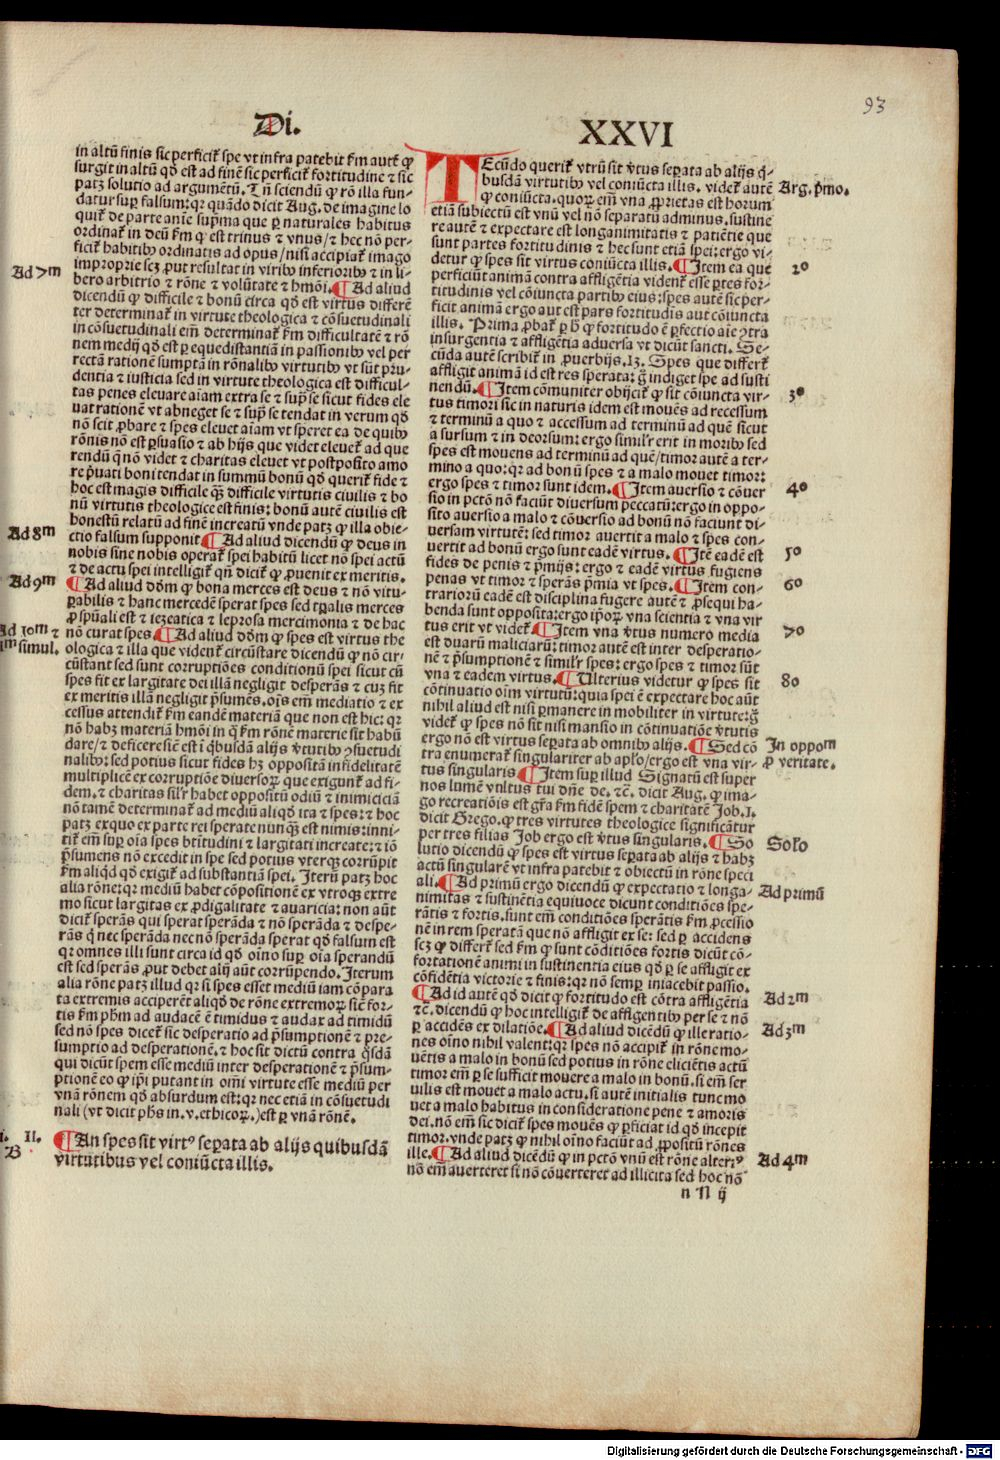 93
Di.
XXVI
in altū finis sic perficit̃ spe vt infra patebit fm autẽ ꝙ
surgit in altū qd̃ est ad finẽ sic perficit̃ fortitudine ⁊ sic
patꝫ solutio ad argumẽtū. Tñ sciendū ꝙ rõ illa fun-
datur suꝑ falsum: qꝛ quãdo dicit Aug. de imagine lo
quit̃ de parte anie sup̃ma que ꝑ naturales habitus
ordinat̃ in deū fm ꝙ est trinus ⁊ vnus/⁊ hec nõ per-
ficit̃ habitibꝰ ordinatis ad opus/nisi accipiat̃ imago
improprie scꝫ ꝓut resultat in viribꝰ inferioribꝰ ⁊ in li-
bero arbitrio ⁊ rõne ⁊ volũtate ⁊ hmõi. ¶ Ad aliud
dicendū ꝙ difficile ⁊ bonū circa qd̃ est virtus differẽ
ter determinat̃ in virtute theologica ⁊ cõsuetudinali
in cõsuetudinali em̃ determinat̃ fm difficultatẽ ⁊ rõ
nem medij qd̃ est ꝑ equedistantiã in passionibꝰ vel per
rectã rationẽ sumptã in rõnalibꝰ virtutibꝰ vt sũt p̃ru-
dentia ⁊ iusticia sed in virtute theologica est difficul-
tas penes eleuare aīam extra se ⁊ sup̃ se sicut fides ele
uat rationẽ vt abneget se ⁊ sup̃ se tendat in verum qd̃
nõ scit ꝓbare ⁊ spes eleuat aīam vt speret ea de quibꝰ
rõnis nõ est ꝑsuasio ⁊ ab hijs que videt eleuet̃ ad que
rendū q̃ nõ videt ⁊ charitas eleuet vt postposito amo
re p̃uati boni tendat in summū bonū qd̃ querit̃ fide ⁊
hoc est magis difficile q̃ꝫ difficile virtutis ciuilis ⁊ bo
nū virtutis theologice est finis: bonū autẽ ciuile est
honestū relatū ad finẽ increatū vnde patꝫ ꝙ illa obie-
ctio falsum supponit ¶ Ad aliud dicendū ꝙ deus in
nobis sine nobis operat̃ spei habitū licet nõ spei actū
⁊ de actu spei intelligit̃ qñ dicit̃ ꝙ ꝓuenit ex meritis.
¶ Ad aliud dõm ꝙ bona merces est deus ⁊ nõ vitu-
ꝑabilis ⁊ hanc mercedẽ sperat spes sed tꝑalis merces
ꝓ spũali est ⁊ iezeatica ⁊ leprosa mercimonia ⁊ de hac
nõ curat spes ¶ Ad aliud dõm ꝙ spes est virtus the
ologica ⁊ illa que vident̃ circũstare dicendū ꝙ nõ cir-
cũstant sed sunt corruptiões conditionū spei sicut cũ
spes fit ex largitate dei illã negligit desperãs ⁊ cuꝫ fit
ex meritis illã negligit p̃sumẽs. oīs em̃ mediatio ⁊ ex
cessus attendit̃ fm eandẽ materiã que non est hic: qꝛ
nõ habꝫ materiã hmõi in q̃ fm rõnẽ materie sit habũ
dare/⁊ deficere siẽ est ĩ q̃busdã alijs v̾tutibꝰ ꝯsuetudi
nalibꝰ: sed potius sicut fides hꝫ oppositã infidelitatẽ
multiplicẽ ex corruptiõe diuersoꝝ que exigunt̃ ad fi-
dem. ⁊ charitas sil̃r habet oppositū odiū ⁊ inimiciciã
nõ tamẽ determinat̃ ad mediū aliqd̃ ita ⁊ spes: ⁊ hoc
patꝫ ex quo ex parte rei sperate nunq̃ꝫ est nimis: inni-
tit̃ em̃ suꝑ oīa spes btĩtudini ⁊ largitati increate: ⁊ iõ
p̃sumens nõ excedit in spe sed potius vterqꝫ corrũpit
fm aliqd̃ qd̃ exigit̃ ad substantiã spei. Iterũ patꝫ hoc
alia rõne: qꝛ mediū habet cõpositionẽ ex vtroqꝫ extre
mo sicut largitas ex ꝓdigalitate ⁊ auaricia: non aũt
dicit̃ sperãs qui sperat sperãda ⁊ nõ sperãda ⁊ despe-
rãs q̃ nec sperãda nec nõ sperãda sperat qd̃ falsum est
qꝛ omnes illi sunt circa id qd̃ oīno suꝑ oīa sperandū
est sed sperãs ꝓut debet alij aũt corrũpendo. Iterum
alia rõne patꝫ illud qꝛ si spes esset mediū iam cõpara
ta extremis acciperẽt aliqd̃ de rõne extremoꝝ sicẽ for-
tis fm p̃hm ad audacẽ ẽ timidus ⁊ audax ad timidū
sed nõ spes dicet̃ sic desperatio ad p̃sumptionẽ ⁊ pre-
sumptio ad desperationẽ. ⁊ hoc sit dictū contra q̃sdã
qui dicũt spem esse mediū inter desperationẽ ⁊ p̃sum-
ptionẽ eo ꝙ ip̃i putant in omni virtute esse mediū per
vnã rõnem qd̃ absurdum est: qꝛ nec etiã in cõsuetudi
nali (vt dicit p̃hs in .v. ethicoꝝ.) est ꝑ vnã rõnẽ.
¶ An spes sit virtꝰ seꝑata ab alijs quibusdã
virtutibus vel coniũcta illis.
Ad 7m
Ad 8m
Ad 9m
Ad 10m ⁊
simul.
II.
B
TEcũdo querit̃ vtrũ sit v̾tus seꝑata ab alijs q̃-
busdã virtutibꝰ vel coniũcta illis. videt̃ autẽ
ꝙ coniũcta. quoꝝ em̃ vna ꝓprietas est horum
etiã subiectū est vnū vel nõ separatū adminus. sustine
re autẽ ⁊ expectare est longanimitatis ⁊ patiẽtie que
sunt partes fortitudinis ⁊ hec sunt etiã spei: ergo vi-
detur ꝙ spes sit virtus coniũcta illis. ¶ Item ea que
perficiũt animã contra affligẽtia vident̃ esse ꝑtes for-
titudinis vel cõiuncta partibꝰ eius: spes autẽ sic per-
ficit animã ergo aut est pars fortitudis aut cõiuncta
illis. Prima ꝓbat̃ ꝑ h̃ ꝙ fortitudo ẽ ꝑfectio aīe ꝯtra
insurgentia ⁊ affligẽtia aduersa vt dicũt sancti. Se-
cũda autẽ scribit̃ in ꝓuerbijs. 13. Spes que differt̃
affligit animã id est res sperata: g̃ indiget spe ad susti
nendū. ¶ Item cõmuniter obijcit̃ ꝙ sit cõiuncta vir-
tus timori sic in naturis idem est mouẽs ad recessum
⁊ terminū a quo ⁊ accessum ad terminū ad quẽ sicut
a sursum ⁊ in deorsum: ergo simil̃r erit in moribꝰ sed
spes est mouens ad terminū ad quẽ/timor autẽ a ter-
mino a quo: qꝛ ad bonū spes ⁊ a malo mouet timor:
ergo spes ⁊ timor sunt idem. ¶ Item auersio ⁊ cõuer
sio in pctõ nõ faciũt diuersum peccatū: ergo in oppo-
sito auersio a malo ⁊ cõuersio ad bonū nõ faciunt di-
uersam virtutẽ: sed timor auertit a malo ⁊ spes con-
uertit ad bonū ergo sunt eadẽ virtus. ¶ Itẽ eadẽ est
fides de penis ⁊ p̃mijs: ergo ⁊ eadẽ virtus fugiens
penas vt timor ⁊ sperãs p̃mia vt spes. ¶ Item con-
trariorū eadẽ est disciplina fugere autẽ ⁊ ꝓsequi ha-
benda sunt opposita: ergo ip̃oꝝ vna scientia ⁊ vna vir
tus erit vt videt̃ ¶ Item vna v̾tus numero media
est duarū maliciarū: timor autẽ est inter desperatio-
nẽ ⁊ p̃sumptionẽ ⁊ simil̃r spes: ergo spes ⁊ timor sũt
vna ⁊ eadem virtus. ¶ Ulterius videtur ꝙ spes sit
cõtinuatio oīm virtutū: quia spei ẽ expectare hoc aũt
nihil aliud est nisi ꝑmanere in mobiliter in virtute: g̃
videt̃ ꝙ spes nõ sit nisi mansio in cõtinuatiõe v̾tutis
ergo nõ est virtus seꝑata ab omnibꝰ alijs. ¶ Sed cõ
tra enumerat̃ singulariter ab apl̃o/ergo est vna vir-
tus singularis ¶ Item suꝑ illud Signatū est super
nos lumẽ vultus tui dñe de. ⁊cẽ. dicit Aug. ꝙ ima-
go recreatiõis est gr̃a fm fidẽ spem ⁊ charitatẽ Job. 1.
dicit Grego. ꝙ tres virtutes theologice significãtur
per tres filias Job ergo est v̾tus singularis. ¶ So
lutio dicendū ꝙ spes est virtus seꝑata ab alijs ⁊ habꝫ
actū singularẽ vt infra patebit ⁊ obiectū in rõne speci
ali. ¶ Ad primū ergo dicendū ꝙ expectatio ⁊ longa-
nimitas ⁊ sustinẽtia equiuoce dicunt conditiões spe-
rãtis ⁊ fortis. sunt em̃ conditiões sperãtis fm ꝓcessio
nẽ in rem speratã que nõ affligit ex se: sed ꝑ accidens
scꝫ ꝙ differt̃ sed fm ꝙ sunt cõditiões fortis dicũt cõ-
fortationẽ animi in sustinentia eius qd̃ ꝑ se affligit ex
cõfidẽtia victorie ⁊ finis: qꝛ nõ semꝑ iniacebit passio.
¶ Ad id autẽ qd̃ dicit ꝙ fortitudo est cõtra affligẽtia
⁊c. dicendū ꝙ hoc intelligit̃ de affligentibꝰ per se ⁊ nõ
ꝑ accidẽs ex dilatiõe. ¶ Ad aliud dicẽdū ꝙ ille ratio-
nes oīno nihil valent: qꝛ spes nõ accipit̃ in rõne mo-
uẽtis a malo in bonū sed potius in rõne eliciẽtis actū
timor em̃ ꝑ se sufficit mouere a malo in bonū. si em̃ ser
uilis est mouet a malo actu. si autẽ initialis tunc mo
uet a malo habitus in consideratione pene ⁊ amoris
dei. nõ em̃ sic dicit̃ spes mouẽs ꝙ ꝑficiat id qd̃ incepit
timor. vnde patꝫ ꝙ nihil oīno faciūt ad ꝓpositū rõnes
ille. ¶ Ad aliud dicẽdū ꝙ in pctõ vnū est rõne alteriꝰ
nõ em̃ auerteret si nõ cõuerteret ad illicita sed hoc nõ
n N ij
Arg. p̃mo.
2o
3o
4o
5o
6o
7o
8o
In oppom
ꝓ veritate.
Solo
Ad primū
Ad 2m
Ad 3m
Ad 4m
Digitalisierung gefördert durch die Deutsche Forschungsgemeinschaft - DFG